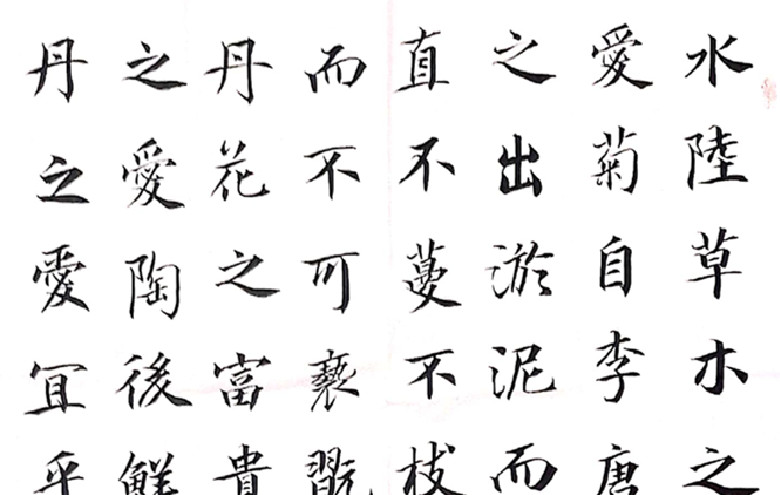 水陸草木之
愛菊自李唐
之出淤泥而
直不蔓不枝
而不可褻翫
丹花之富貴
之愛陶後鮮
丹之愛冝乎